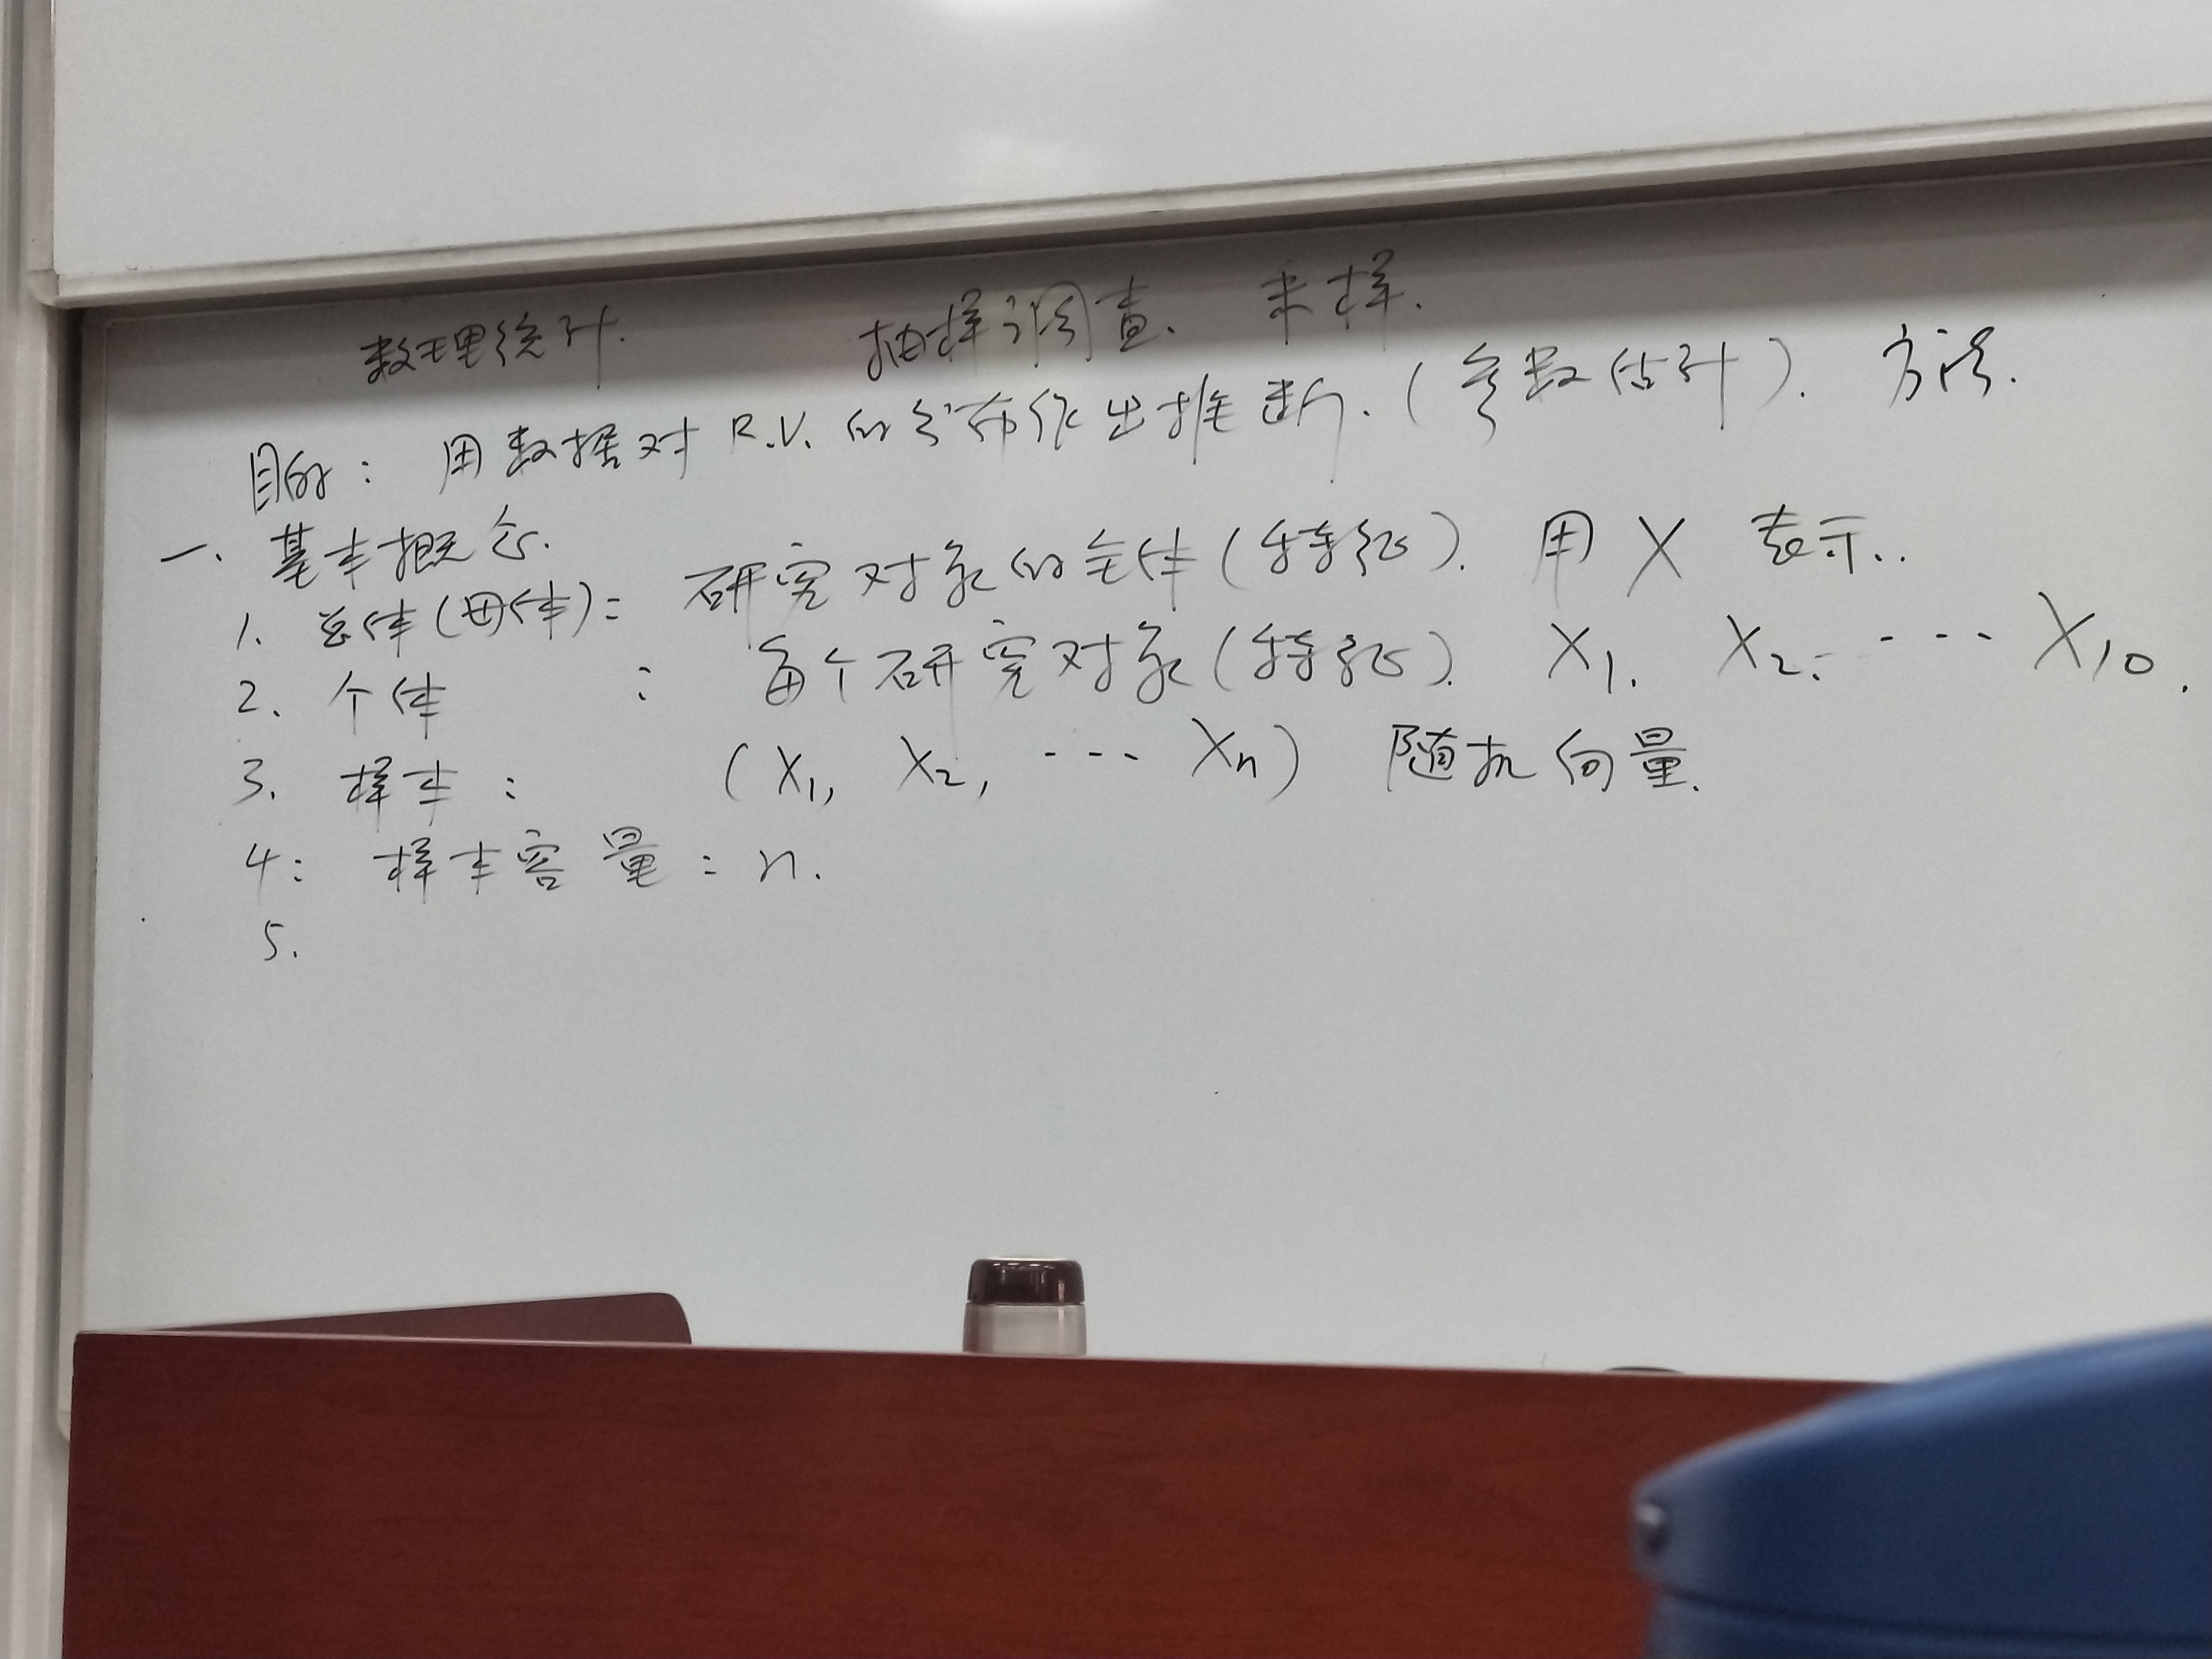 数理统计. 抽样调查. 采样.
目的: 用数据对 R.V. 的分布作出推断. (参数估计). 方法.
一. 基本概念.
1. 总体(母体): 研究对象的全体(特征). 用 X 表示..
2. 个体 : 每个研究对象(特征). X₁. X₂. ... X₁₀.
3. 样本: (X₁, X₂, ... Xₙ) 随机向量.
4: 样本容量: n.
5.